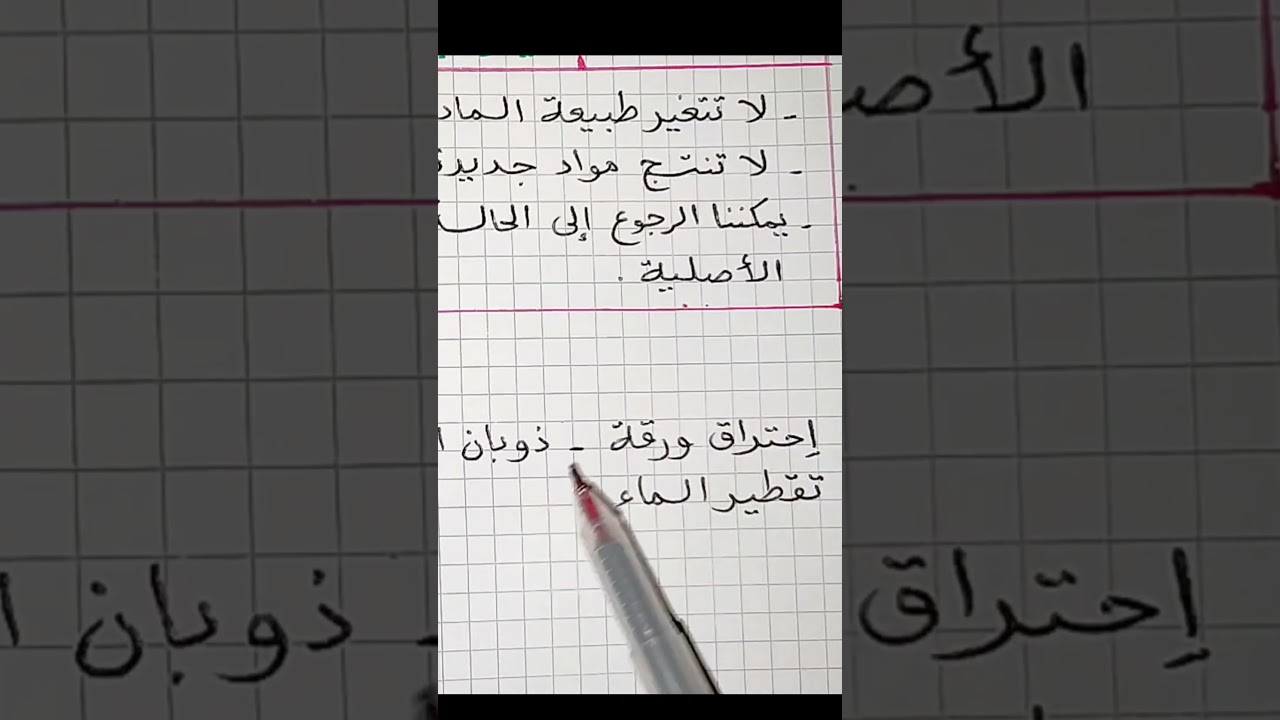 - لا تتغير طبيعة الماد
- لا تنتج مواد جديدة
- يمكننا الرجوع إلى الحالة
الأصلية .
إحتراق ورقة - ذوبان ا
تقطير الماء